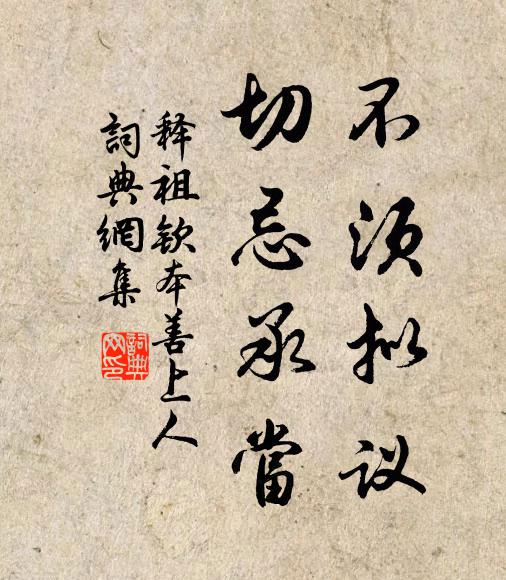 不须拟议
切忌承當
释祖钦本善上人
詞典網集
詞典网印